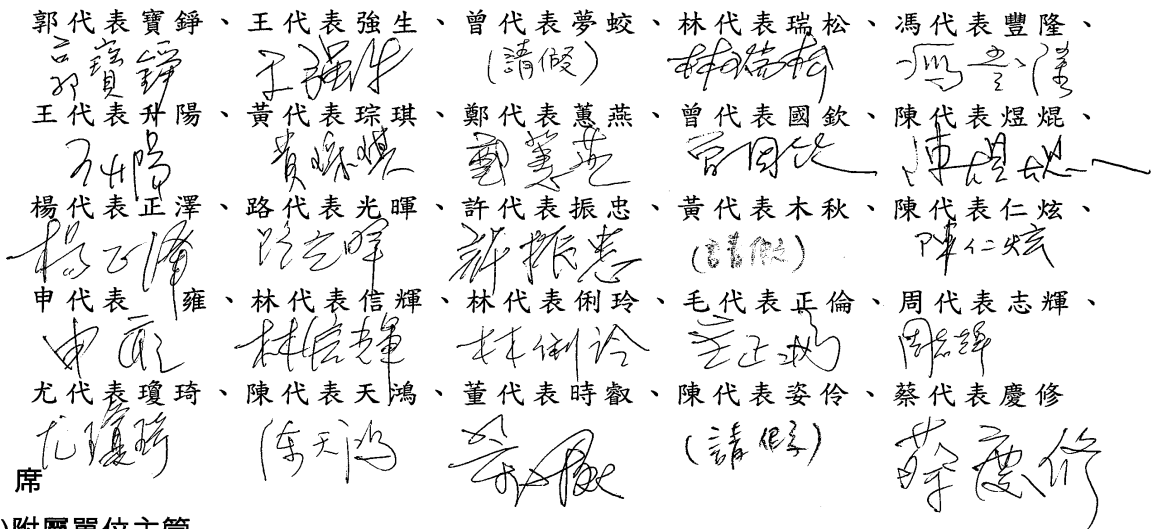 郭代表寶錚、王代表強生、曾代表夢蛟、林代表瑞松、馮代表豐隆、
郭寶錚 王強生 (請假) 林瑞松 馮豐隆
王代表升陽、黃代表琮琪、鄭代表蕙燕、曾代表國欽、陳代表煜焜、
王升陽 黃琮琪 鄭蕙燕 曾國欽 陳煜焜
楊代表正澤、路代表光暉、許代表振忠、黃代表木秋、陳代表仁炫、
楊正澤 路光暉 許振忠 (請假) 陳仁炫
申代表 雍、林代表信輝、林代表俐玲、毛代表正倫、周代表志輝、
申雍 林信輝 林俐玲 周志輝
尤代表瓊琦、陳代表天鴻、董代表時叡、陳代表姿伶、蔡代表慶修
尤瓊琦 陳天鴻 (請假) 蔡慶修
席
)附屬單位主管